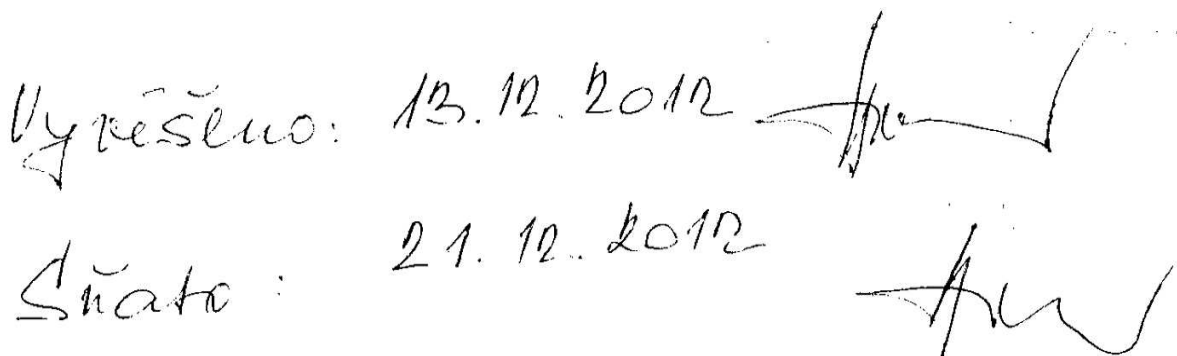 Vyvěšeno: 13.12.2012
Sňato: 21.12.2012